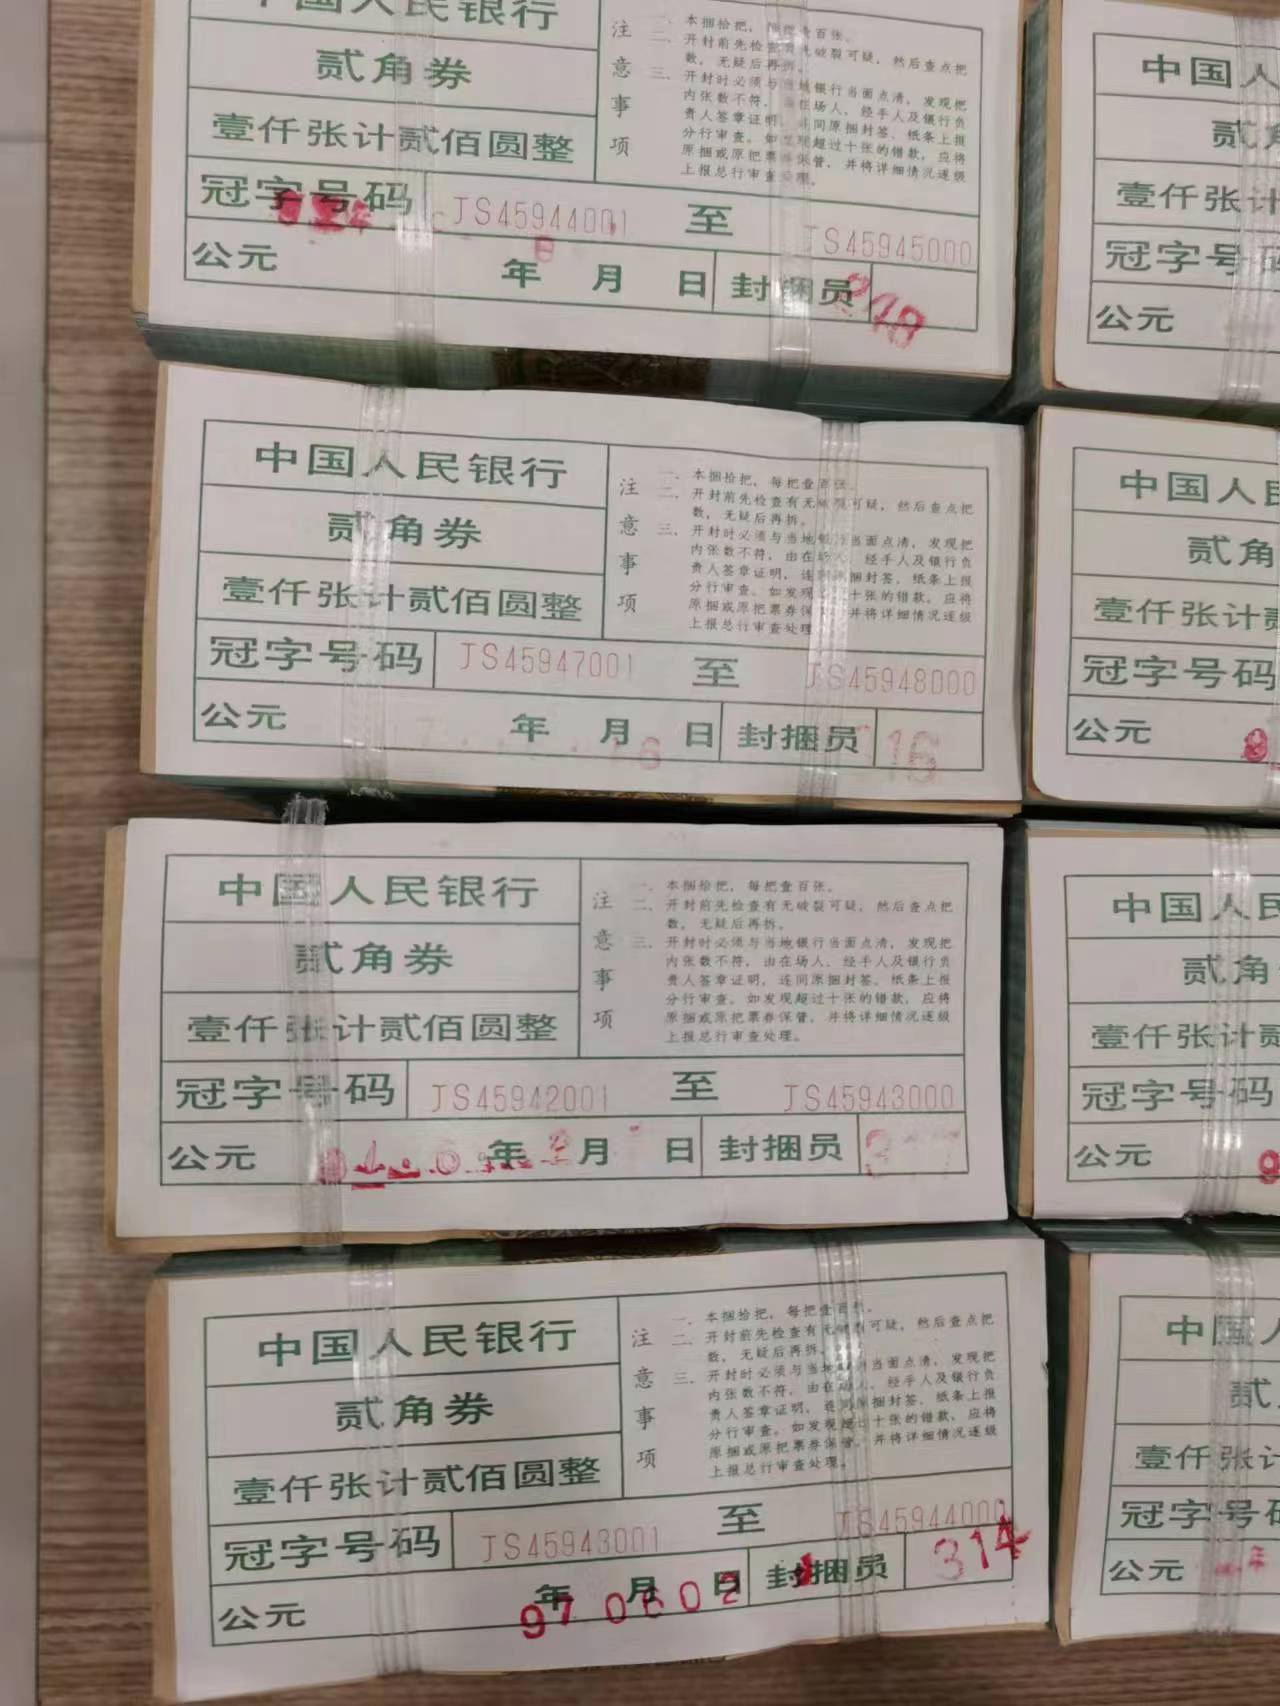 中国人民银行
贰角券
壹仟张计贰佰圆整
注意事项
一、本捆拾把，每把壹百张。
二、开封前先检查有无破裂可疑，然后查点把
数，无疑后再拆。
三、开封时必须与当地银行当面点清，发现把
内张数不符，由在场人、经手人及银行负
责人签章证明，连同原捆封签、纸条上报
分行审查。如发现超过十张的错款，应将
原捆或原把票券保管，并将详细情况逐级
上报总行审查处理。
冠字号码 JS45944001 至 JS45945000
公元 年 月 日 封捆员
中国人民银行
贰角券
壹仟张计贰佰圆整
注意事项
一、本捆拾把，每把壹百张。
二、开封前先检查有无破裂可疑，然后查点把
数，无疑后再拆。
三、开封时必须与当地银行当面点清，发现把
内张数不符，由在场人、经手人及银行负
责人签章证明，连同原捆封签、纸条上报
分行审查。如发现超过十张的错款，应将
原捆或原把票券保管，并将详细情况逐级
上报总行审查处理
冠字号码 JS45947001 至 JS45948000
公元 年 月 日 封捆员 16
中国人民银行
贰角券
壹仟张计贰佰圆整
注意事项
一、本捆拾把，每把壹百张。
二、开封前先检查有无破裂可疑，然后查点把
数，无疑后再拆。
三、开封时必须与当地银行当面点清，发现把
内张数不符，由在场人、经手人及银行负
责人签章证明，连同原捆封签、纸条上报
分行审查。如发现超过十张的错款，应将
原捆或原把票券保管，并将详细情况逐级
上报总行审查处理。
冠字号码 JS45942001 至 JS45943000
公元 年 月 日 封捆员
中国人民银行
贰角券
壹仟张计贰佰圆整
注意事项
一、本捆拾把，每把壹百张。
二、开封前先检查有无破裂可疑，然后查点把
数，无疑后再拆。
三、开封时必须与当地银行当面点清，发现把
内张数不符，由在场人、经手人及银行负
责人签章证明，连同原捆封签、纸条上报
分行审查。如发现超过十张的错款，应将
原捆或原把票券保管，并将详细情况逐级
上报总行审查处理。
冠字号码 JS45943001 至 JS45944000
公元 年 月 日 封捆员 314
97 0602
中国人
贰角
壹仟张计
冠字号码
公元
中国人民
贰角
壹仟张计贰
冠字号码
公元
中国人民
贰角
壹仟张计贰
冠字号码
公元
中国人
贰
壹仟张计
冠字号码
公元